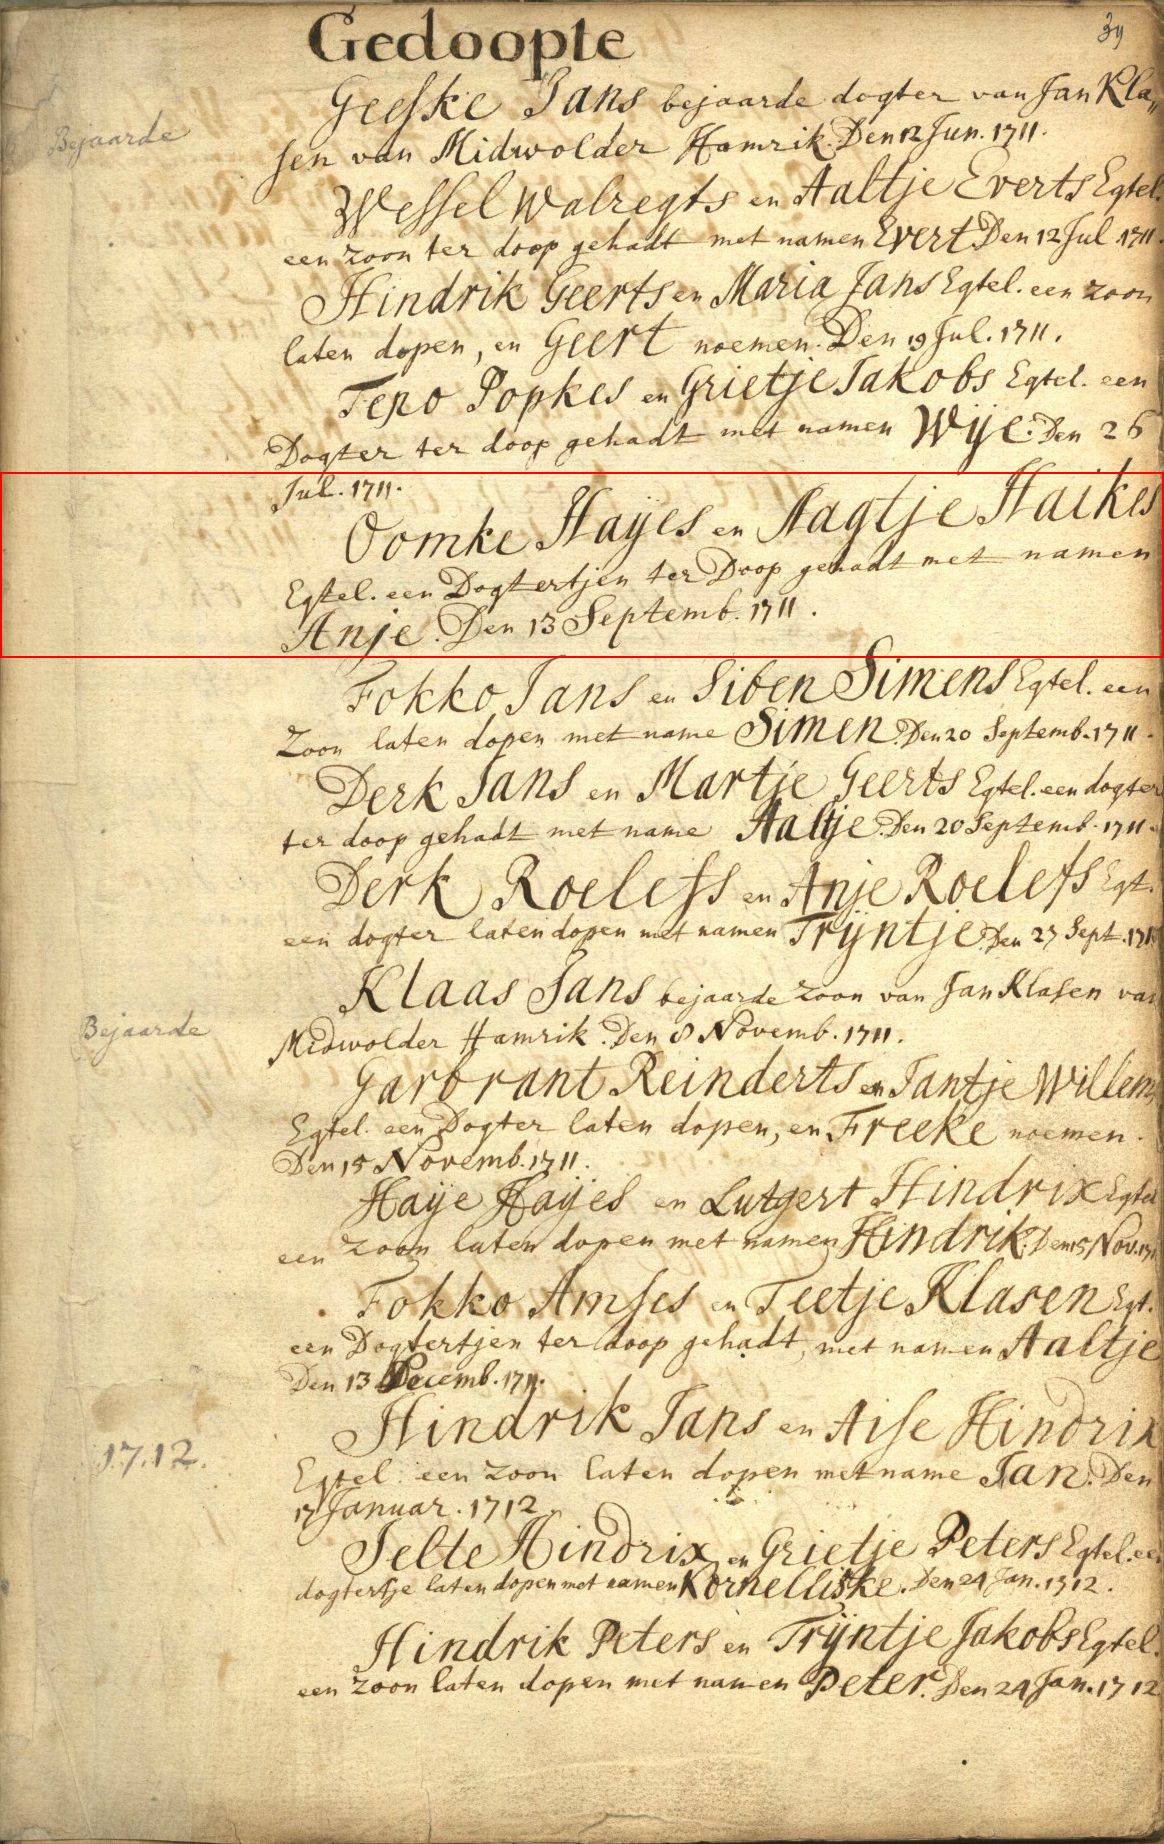 Gedoopte
39
Geeske Jans bejaarde dogter van Jan Kla„
Bejaarde
sen van Midwolder Hamrik. Den 12 Jun. 1711.
Wessel Walregts en Aaltje Everts Egtel.
een zoon ter doop gehadt met namen Evert Den 12 Jul 1711.
Hindrik Geerts en Maria Jans Egtel. een zoon
laten dopen, en Geert noemen. Den 19 Jul. 1711.
Tepo Popkes en Grietje Jakobs Egtel. een
Dogter ter doop gehadt met namen Wije. Den 26
Jul. 1711.
Oomke Hayes en Aagtje Haikes
Egtel. een Dogtertjen ter Doop gehadt met namen
Anje. Den 13 Septemb. 1711.
Fokko Jans en Siben Simens Egtel. een
Zoon laten dopen met name Simen. Den 20 Septemb. 1711.
Derk Jans en Martje Geerts Egtel. een dogter
ter doop gehadt met name Aaltje. Den 20 Septemb. 1711.
Derk Roelefs en Anje Roelefs Egt.
een dogter laten dopen met namen Trijntje. Den 27 Sept. 1711
Klaas Jans bejaarde zoon van Jan Klasen van
Bejaarde
Midwolder Hamrik. Den 8 Novemb. 1711.
Garbrant Reinderts en Jantje Willems
Egtel. een Dogter laten dopen, en Freeke noemen.
Den 15 Novemb. 1711.
Haije Haijes en Lutgert Hindrix Egtel
een zoon laten dopen met namen Hindrik. Den 15 Nov. 1711
Fokko Amses en Teetje Klasen Egt.
een Dogtertjen ter doop gehadt, met namen Aaltje
Den 13 Decemb. 1711.
Hindrik Jans en Aise Hindrix
1712.
Egtel. een zoon laten dopen met name Jan. Den
17 Januar. 1712.
Jelte Hindrix en Grietje Peters Egtel. een
dogtertje laten dopen met namen Kornelliske. Den 24 Jan. 1712.
Hindrik Peters en Trijntje Jakobs Egtel.
een zoon laten dopen met namen Peter. Den 24 Jan. 1712